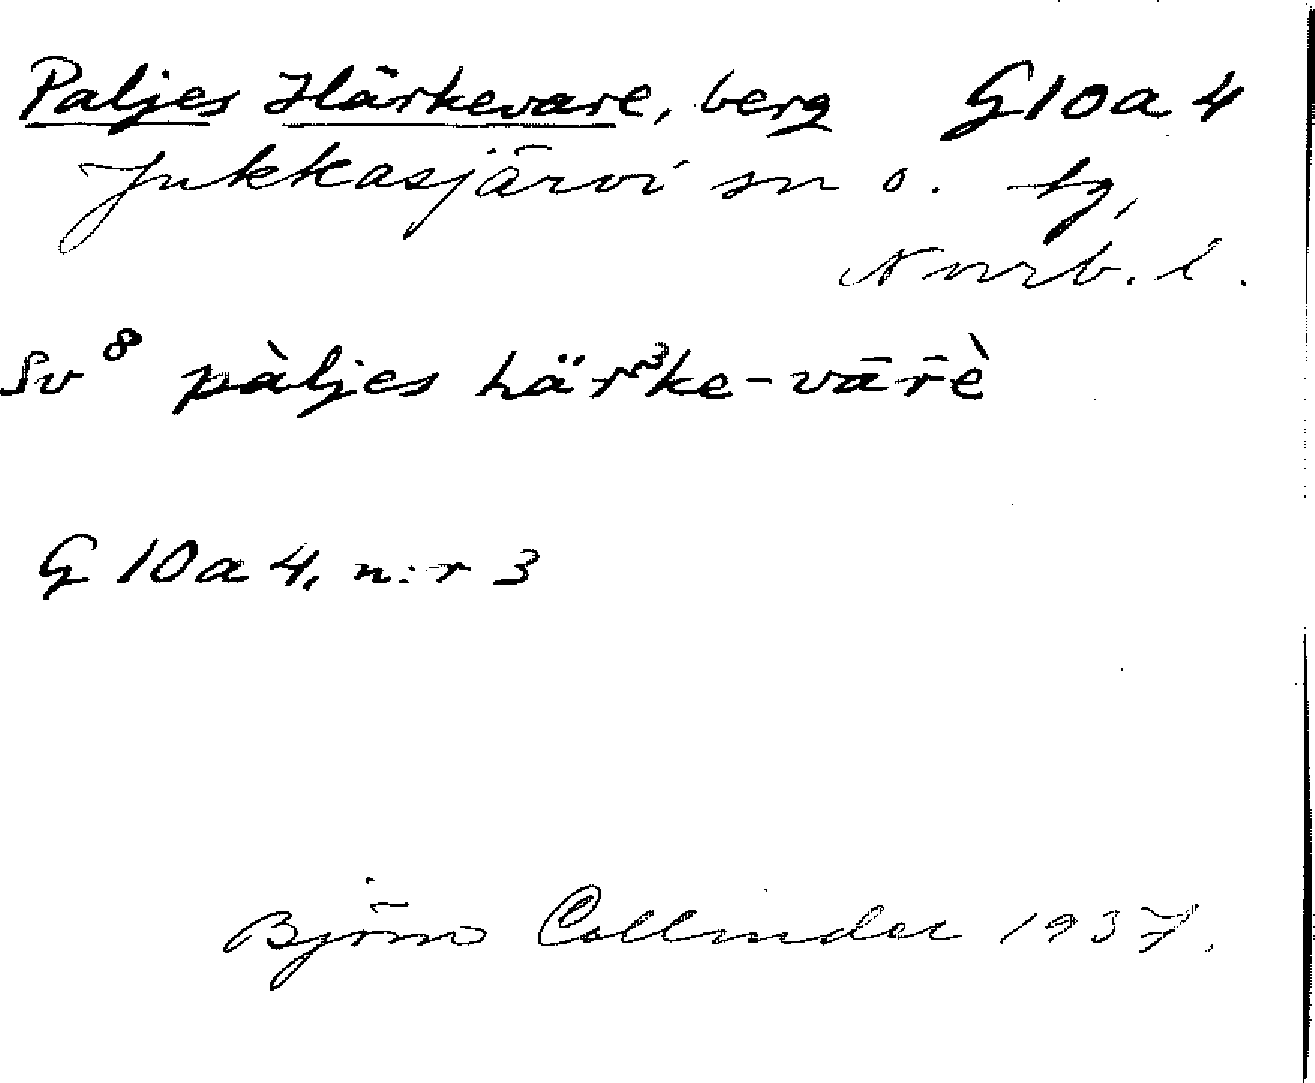 Paljes Härkevare, berg G10a4
Jukkasjärvi sn o. tg,
Norrb. l.
Sv⁸ pàljes härᵌke-vārè
G 10a 4, n:r 3
Björn Collinder 1937.